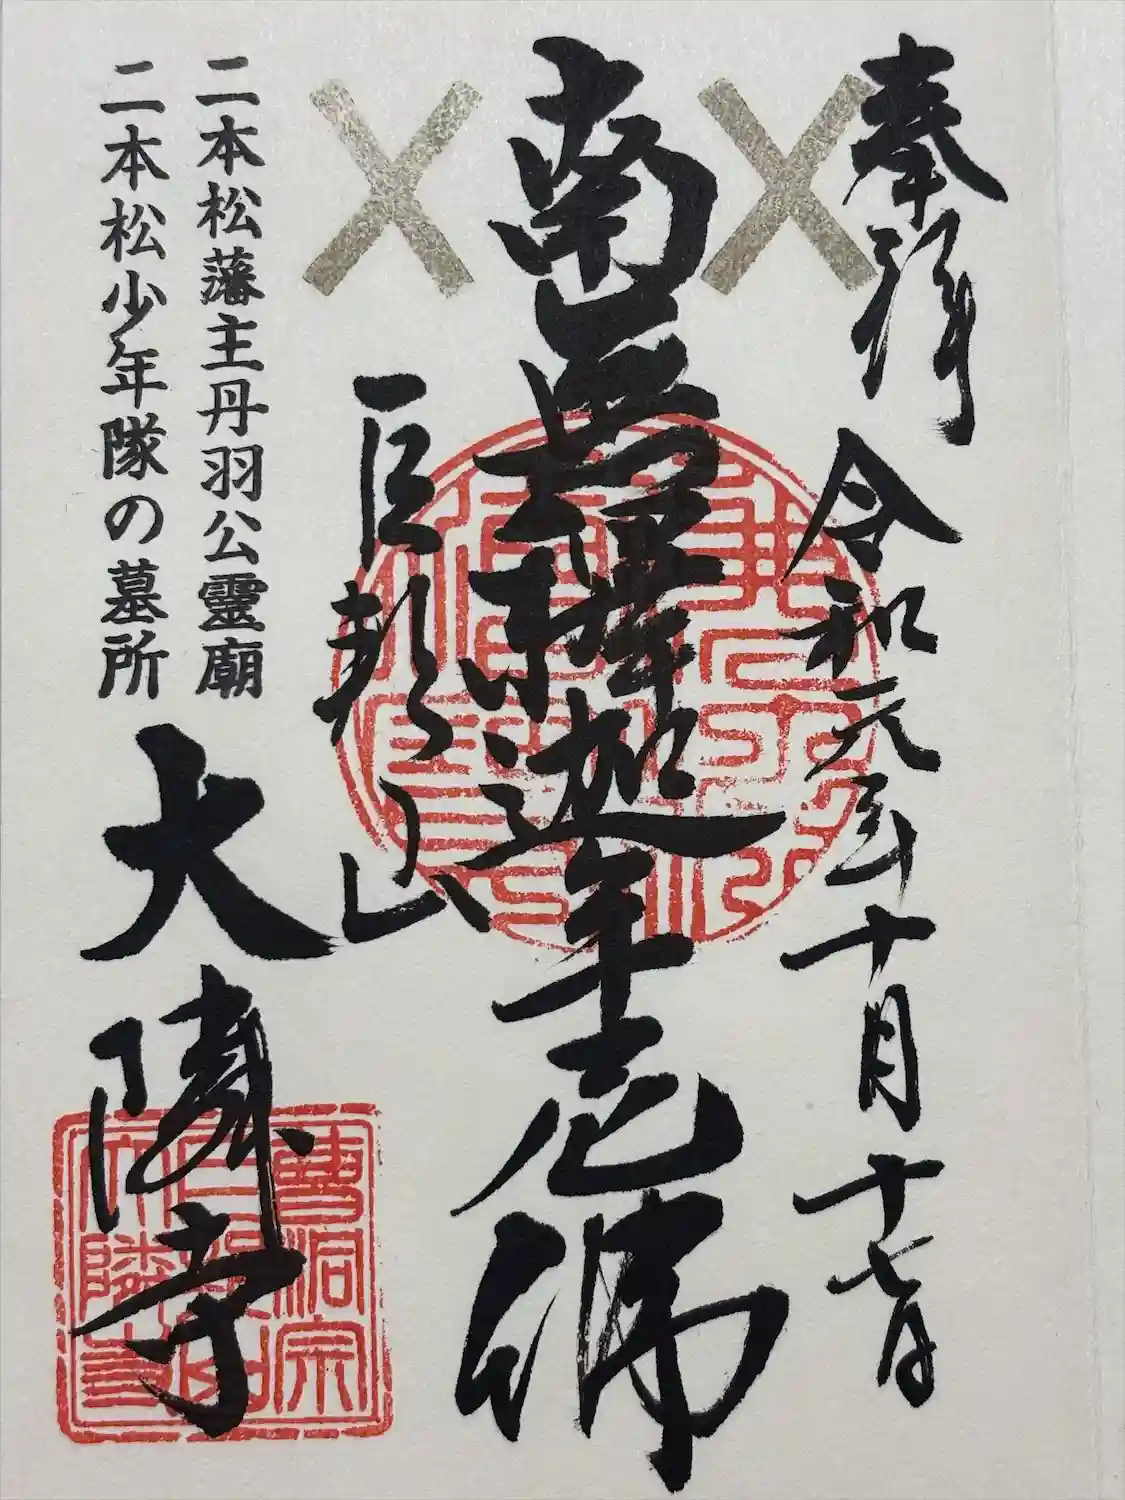 奉拝
令和元年十月十七日
南無釋迦牟尼佛
巨邦山
二本松藩主丹羽公靈廟
二本松少年隊の墓所
大隣寺
曹洞宗